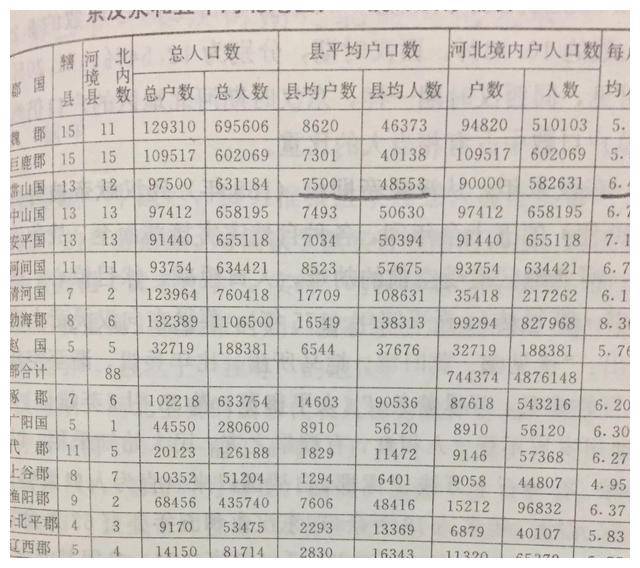 国 辖县 河北境内县数 总人口数 县平均户口数 河北境内户人口数
总户数 总人数 县均户数 县均人数 户数 人数
郡 15 11 129310 695606 8620 46373 94820 510103 5.
巨鹿郡 15 15 109517 602069 7301 40138 109517 602069 5.
常山国 13 12 97500 631184 7500 48553 90000 582631 6.
中山国 13 13 97412 658195 7493 50630 97412 658195 6.7
安平国 13 13 91440 655118 7034 50394 91440 655118 7.1
河间国 11 11 93754 634421 8523 57675 93754 634421 6.7
清河国 7 2 123964 760418 17709 108631 35418 217262 6.1
渤海郡 8 6 132389 1106500 16549 138313 99294 827968 8.3
赵 国 5 5 32719 188381 6544 37676 32719 188381 5.76
部合计 88 744374 4876148
涿 郡 7 6 102218 633754 14603 90536 87618 543216 6.20
广阳国 5 1 44550 280600 8910 56120 8910 56120 6.30
代 郡 11 5 20123 126188 1829 11472 9146 57368 6.27
上谷郡 8 7 10352 51204 1294 6401 9058 44807 4.95
渔阳郡 9 2 68456 435740 7606 48416 15212 96832 6.37
北平郡 4 3 9170 53475 2293 13369 6879 40107 5.83
辽西郡 5 4 14150 81714 2830 16343 11320